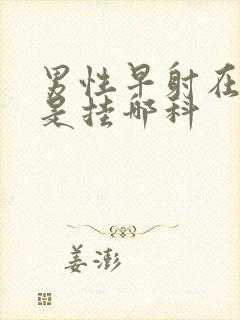 男性早射在
是挂哪科
姜澎